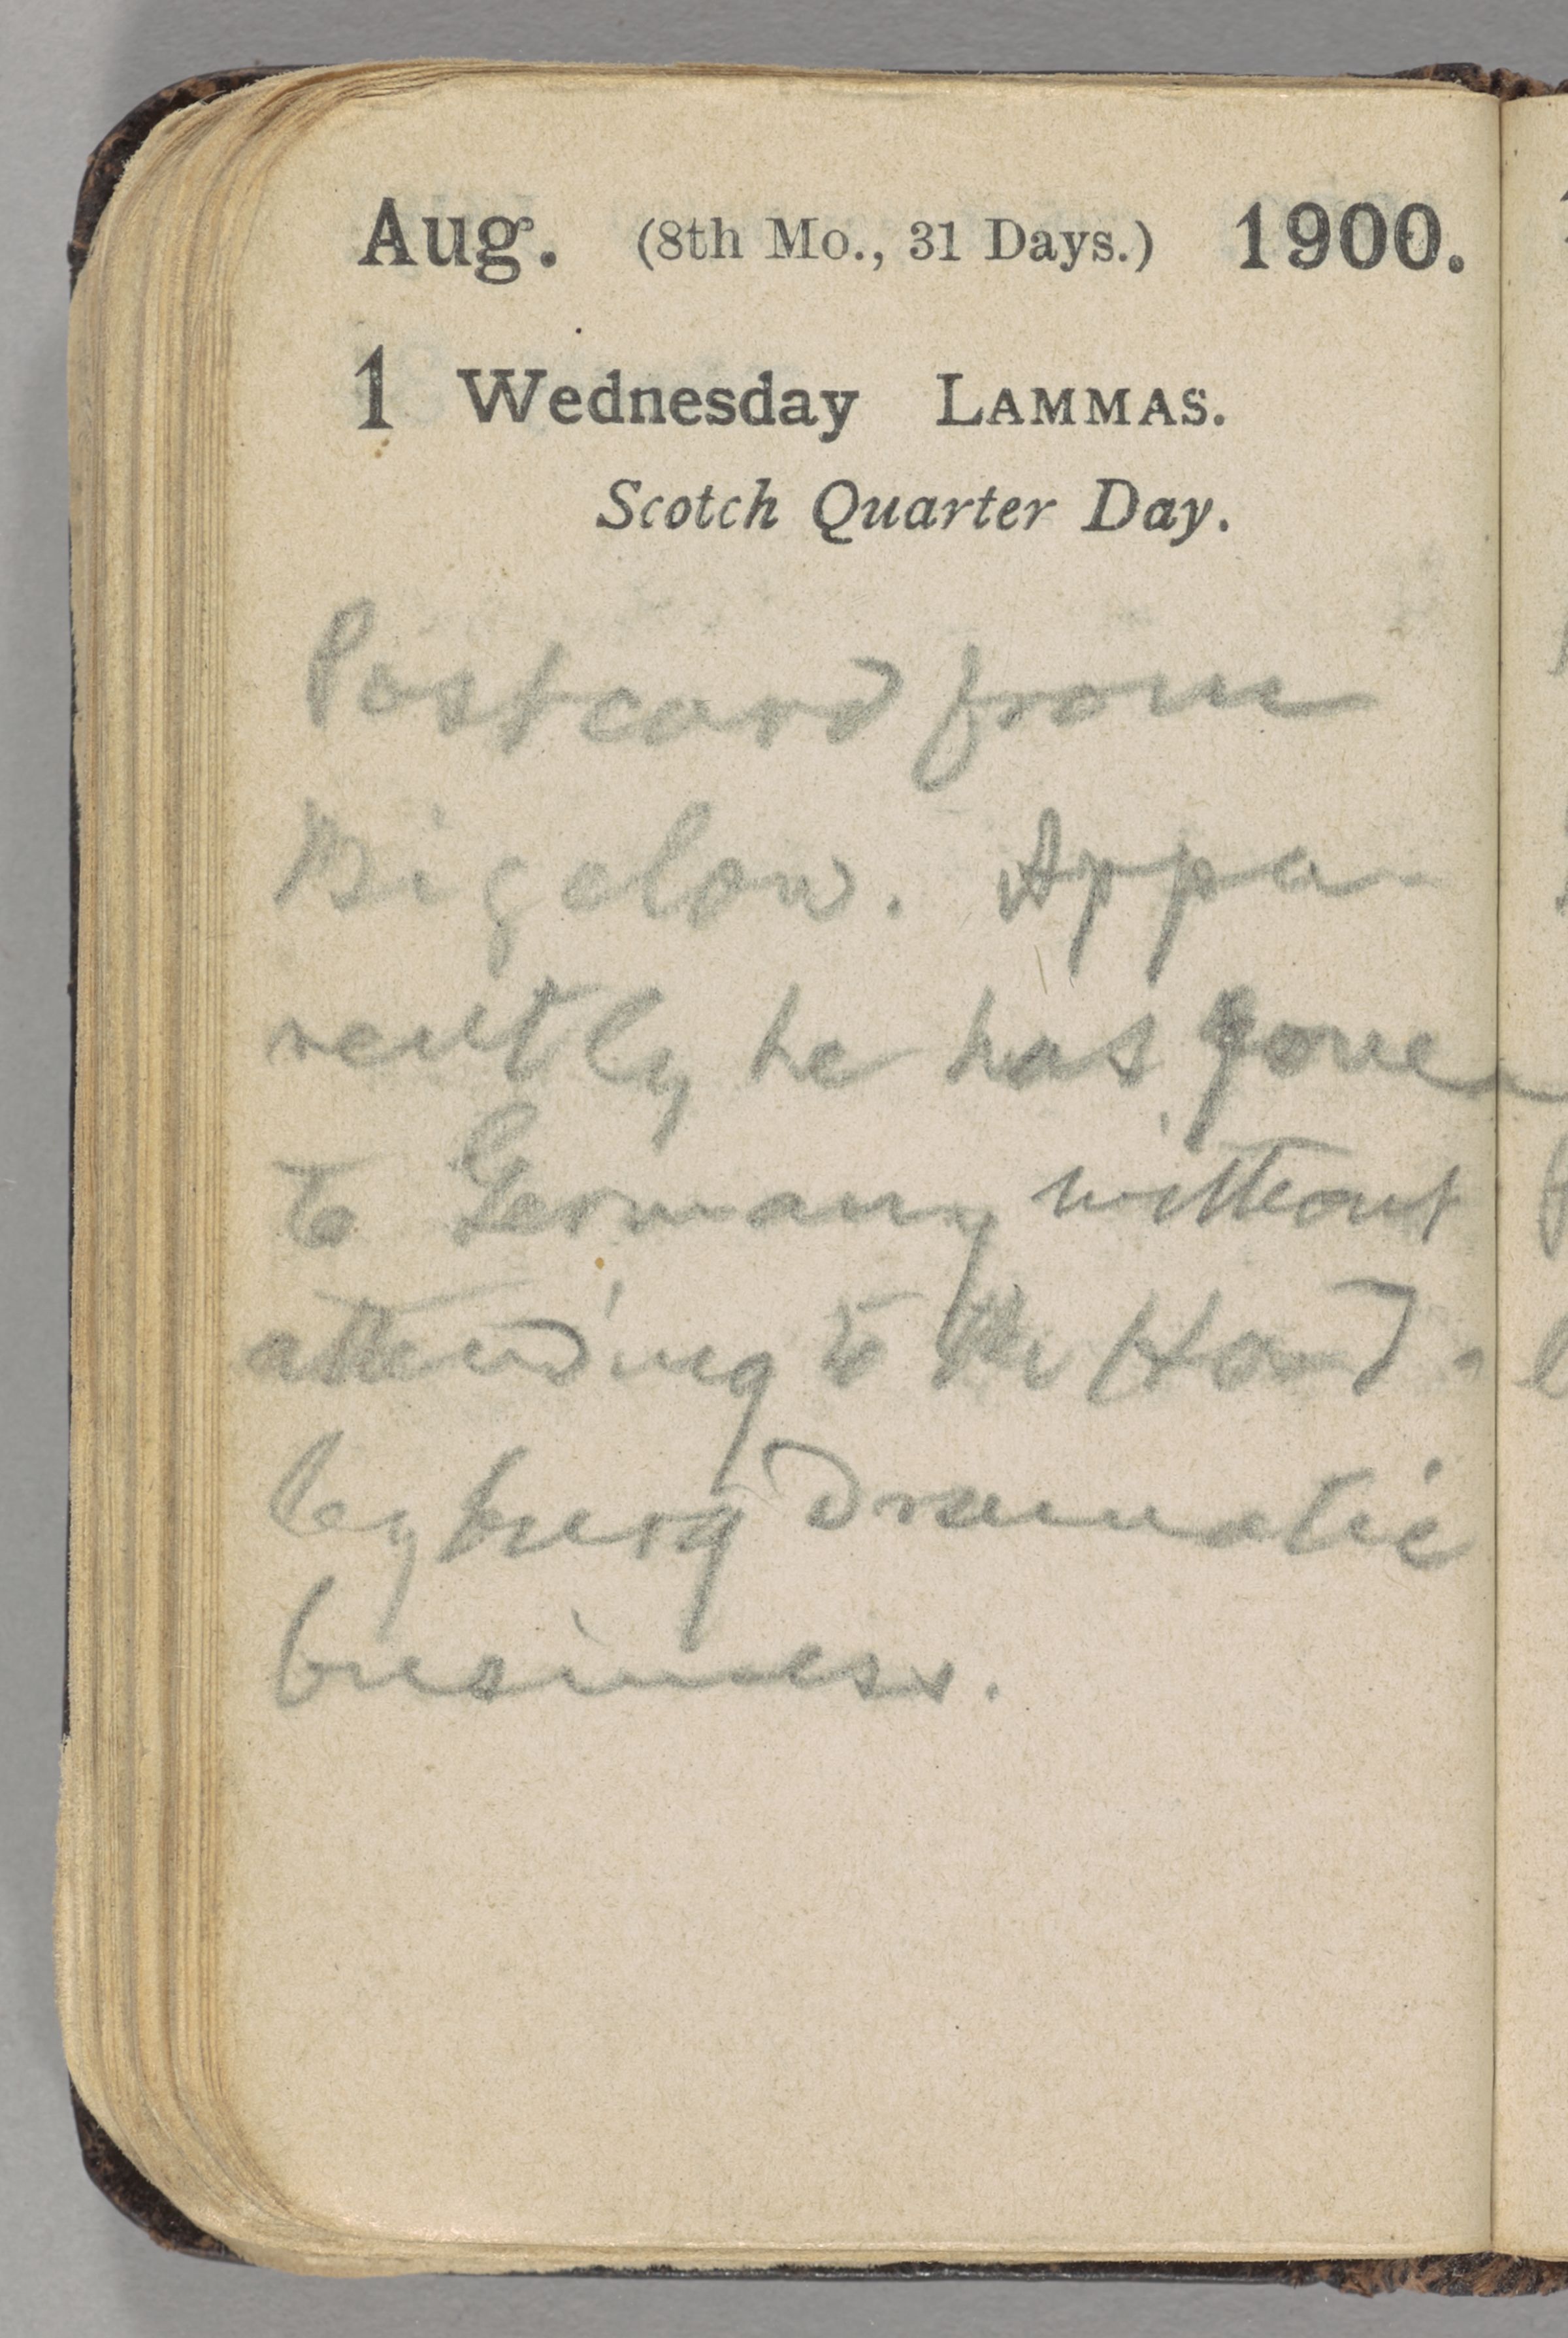 Aug. (8th Mo., 31 Days.) 1900.
1 Wednesday LAMMAS.
Scotch Quarter Day.
Postcard from
Bigelow. Appa-
rently he has gone
to Germany without
attending to the Hand-
leyburg Dramatic
business.